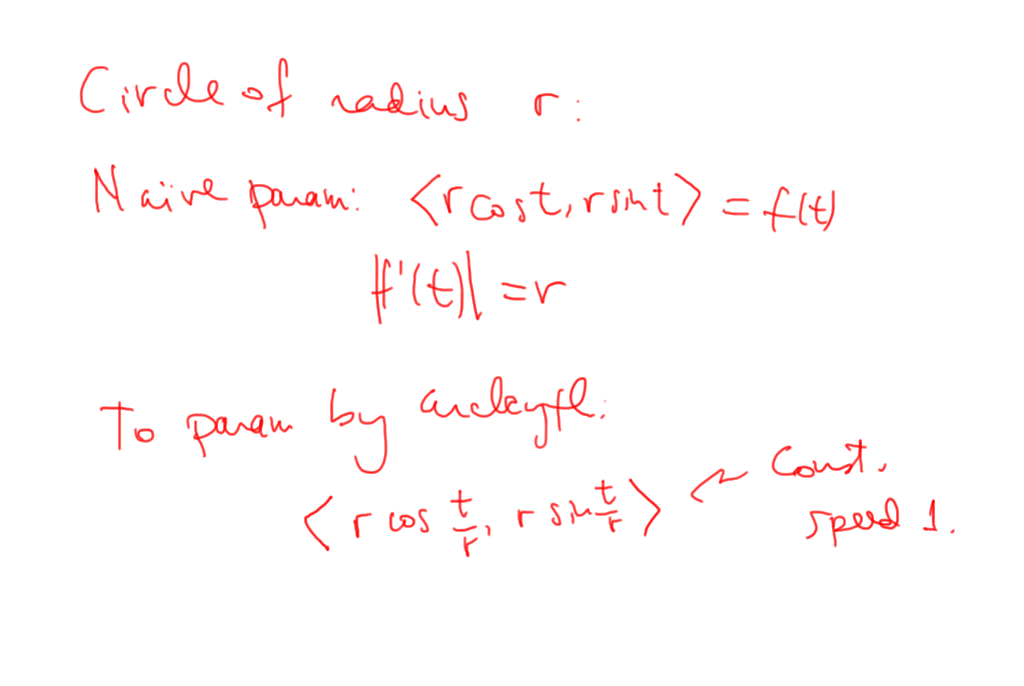 Circle of radius r:
Naive param: ⟨r cos t, r sin t⟩ = f(t)
|f'(t)| = r
To param by arclength:
⟨r cos t/r, r sin t/r⟩ ← const.
speed 1.